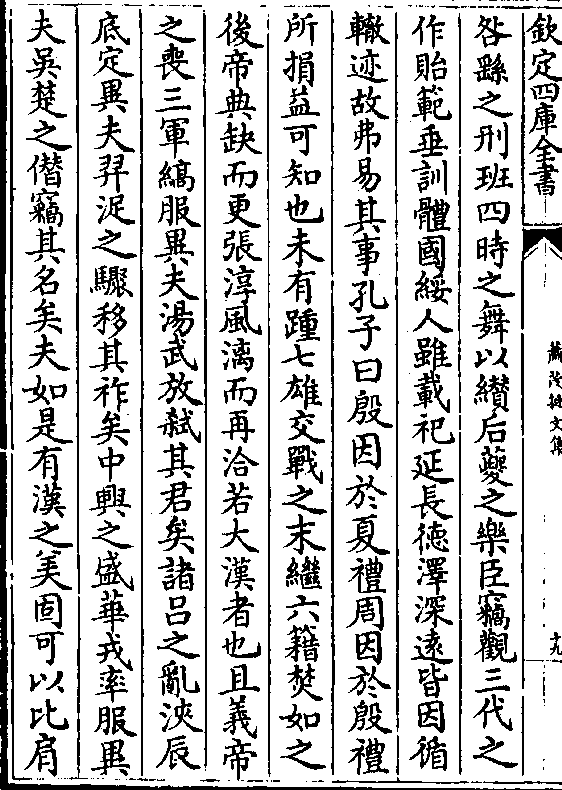 欽定四庫全書
咎繇之刑班四時之舞以纉后夔之樂臣竊觀三代之
作貽範垂訓體國綏人雖載祀延長徳澤深遠皆因循
轍迹故弗易其事孔子曰殷因於夏禮周因於殷禮
所損益可知也未有踵七雄交戰之末繼六籍焚如之
後帝典缺而更張淳風漓而再洽若大漢者也且義帝
之喪三軍縞服異夫湯武放弑其君矣諸吕之亂浹辰
底定異夫羿浞之驟移其祚矣中興之盛華戎率服異
夫吳楚之僭竊其名矣夫如是有漢之美固可以比肩
文集
十九